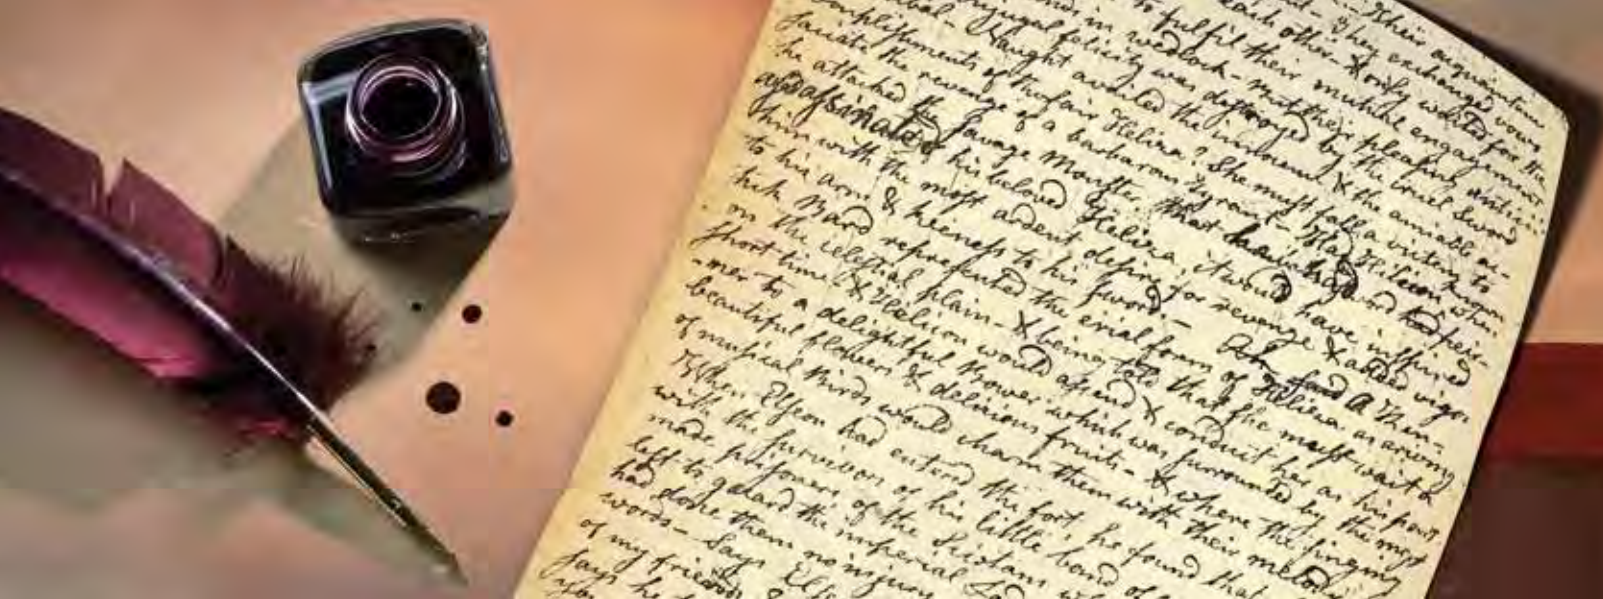 Their acquaintan
each other - They exchanged vows
to fulfil their mutual engagement & only waited for the
in wedlock - But their pleasing anticip
conjugal felicity was destroyed by the cruel sword
Naught availed the innocence & the amiable ac-
complishments of the fair Heliza? She must fall a victim to
satiate the revenge of a barbarous tyrant - Had Helicon known when
he attacked the savage Monster that he had
assassinated his beloved Heliza, it would have inspired
him with the most ardent desire for revenge & added vigor
to his arm & keeness to his sword. - said A Then-
kish Bard represented the erial form of Heliza as ariving
on the celestial plain - & being told that she must wait a
short time & Helicon would asend & conduct her as his part
-ner to a delightful Bower which was surrounded by the most
beautiful flowers & delicious fruits - & where the singing
of musical Birds would charm them with their melod
When Elseon had enterd the fort, he found that
with the survivors of his little band of
made prisoners of the Sciotans wh
left to guard the imperial
had done them no injury
words - Says Els
of my friends
says he
you